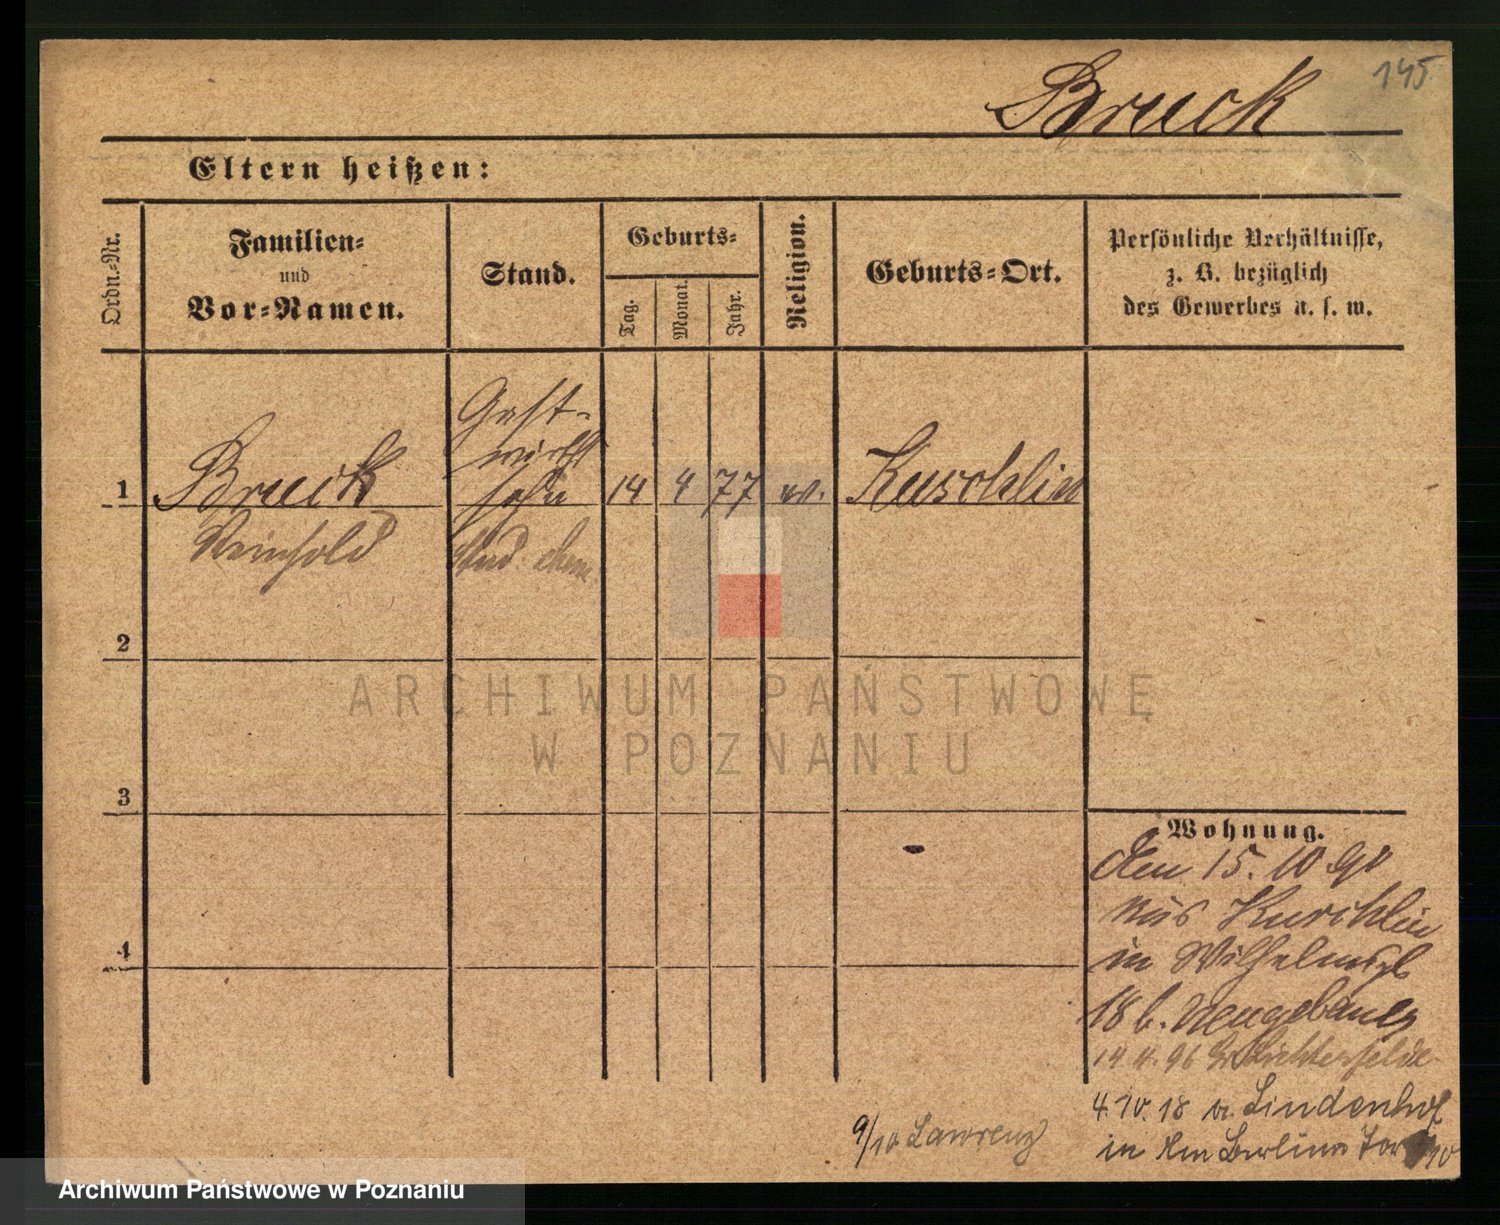 145
Bruck
Eltern heißen:
Ordn.-Nr.
Familien-
und
Vor-Namen.
Stand.
Geburts-
Tag.
Monat.
Jahr.
Religion.
Geburts-Ort.
Persönliche Verhältnisse,
z. B. bezüglich
des Gewerbes u. s. w.
Gast-
wirths
sohn
1
Bruck
14
4
77
ev.
Kuschlin
Reinhold
Stud. chem.
2
ARCHIWUM PAŃSTWOWE
W POZNANIU
3
Wohnung.
den 15. 10
aus Kuschlin
4
in Wilhelmspl
18 b. Neugebauer
14.4.96 Gr. Lichterfelde
4.10.18 v. Lindenhof
in Am Berliner Tor
9/10 Lawrenz
Archiwum Państwowe w Poznaniu